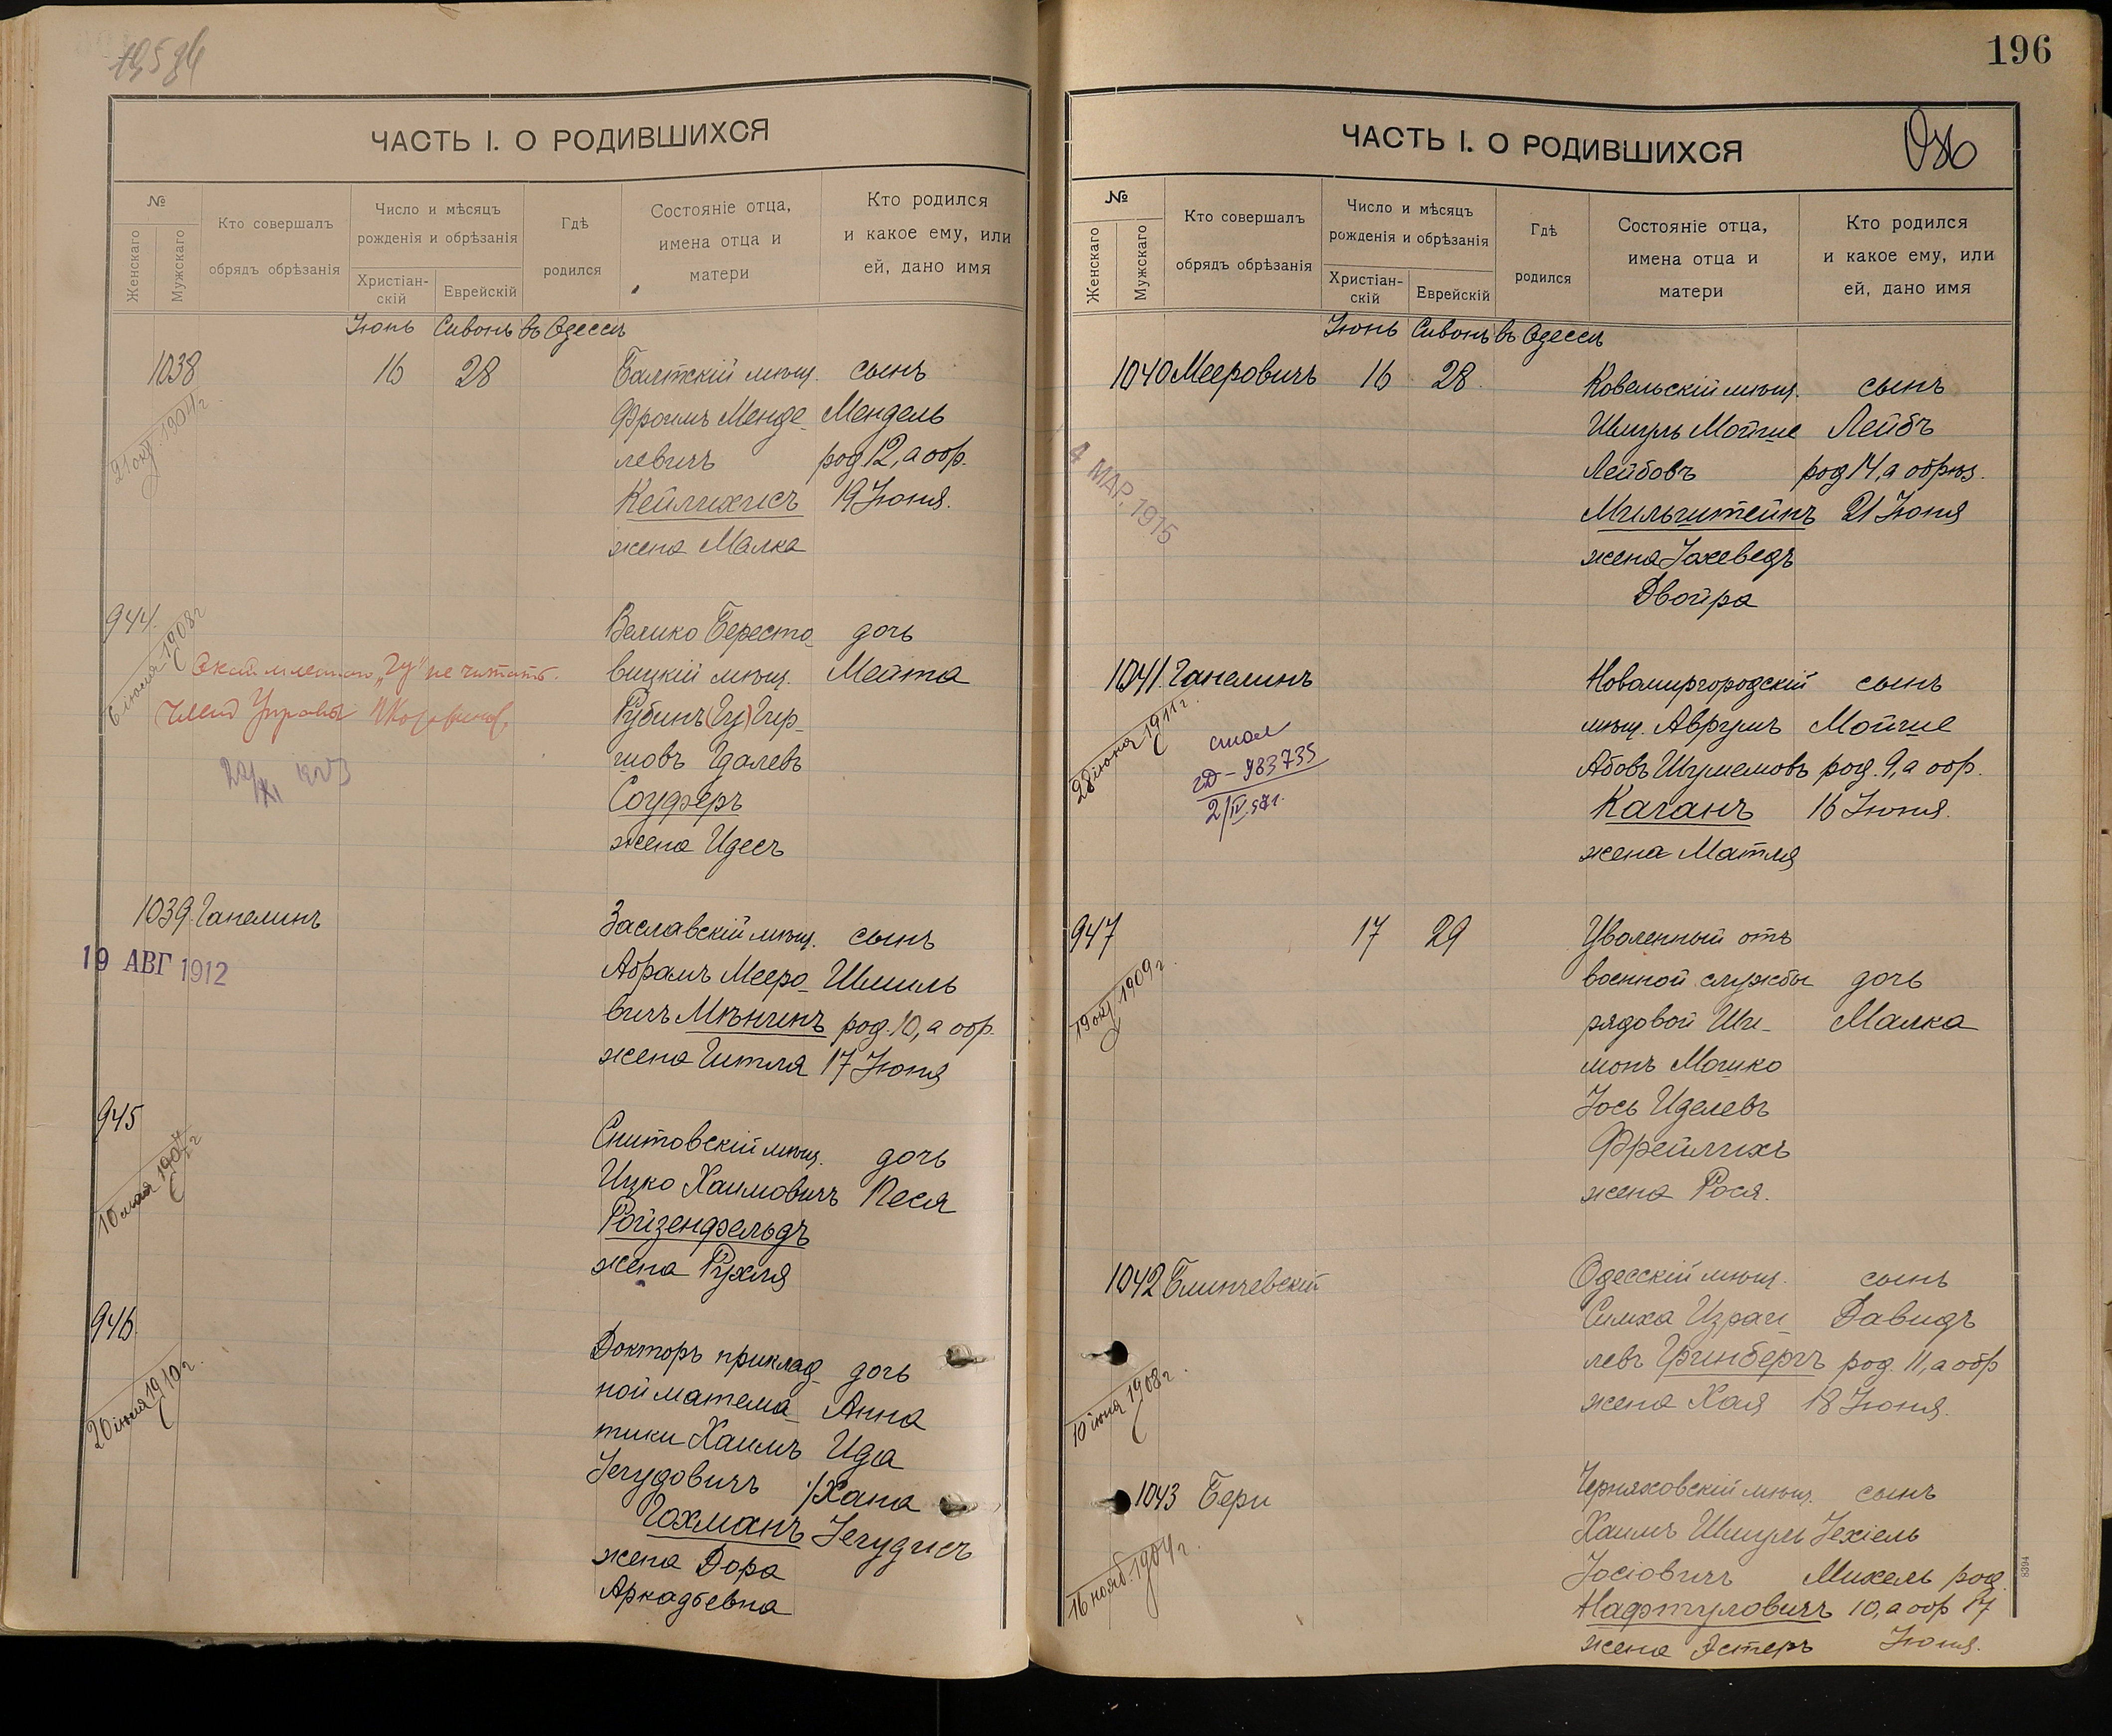 195 об
ЧАСТЬ I. О РОДИВШИХСЯ
№
Женскаго
Мужскаго
Кто совершалъ
обрядъ обрѣзанія
Число и мѣсяцъ
рожденія и обрѣзанія
Христіан-
скій
Еврейскій
Гдѣ
родился
Состояніе отца,
имена отца и
матери
Кто родился
и какое ему, или
ей, дано имя
Іюнь Сивонъ въ Одессѣ
1038 16 28 Балтскій мѣщ. сынъ
Фроимъ Менде- Мендель
левичъ род 12, а обр.
Кейлихисъ 19 Іюня.
жена Малка
21 окт. 1904 г.
944. Велико Бересто- дочь
вицкій мѣщ. Мейта
Рубинъ (Гу) Гир-
шовъ Гдалевъ
Соуферъ
жена Идесъ
6 іюля 1908 г
„Гу" не читать.
Членъ Управы
22/XI 1923
1039. Ганелинъ Заславскій мѣщ. сынъ
Абрамъ Мееро- Шмиль
вичъ Мѣнчинъ род. 10, а обр.
жена Гитля 17 Іюня
19 АВГ 1912
945 Снитовскій мѣщ. дочь
Ицко Хаимовичъ Песя
Ройзенфельдъ
жена Рухля
10 мая 1907 г
946. Докторъ приклад- дочь
ной матема- Анна
тики Хаимъ Ида
Іегудовичъ /Хана
Гохманъ Іегудисъ
жена Дора
Аркадьевна
20 іюня 1910 г.
196
ЧАСТЬ I. О РОДИВШИХСЯ
№
Женскаго
Мужскаго
Кто совершалъ
обрядъ обрѣзанія
Число и мѣсяцъ
рожденія и обрѣзанія
Христіан-
скій
Еврейскій
Гдѣ
родился
Состояніе отца,
имена отца и
матери
Кто родился
и какое ему, или
ей, дано имя
Іюнь Сивонъ въ Одессѣ
1040 Мееровичъ 16 28. Ковельскій мѣщ. сынъ
Шмуль Мойше Лейбъ
Лейбовъ род 14, а обрѣз.
Мильштейнъ 21 Іюня
жена Іохеведъ
Двойра
4 МАР. 1915
1041. Ганелинъ Новомиргородскій сынъ
мѣщ. Аврумъ Мойше
Абовъ Шулемовъ род. 9, а обр.
Каганъ 16 Іюня.
жена Матля
28 іюня 1911 г.
983735
2/IV.57г.
947 17 29 Уволенный отъ
военной службы дочь
рядовой Ши- Малка
монъ Мошко
Іось Иделевъ
Фрейлихъ
жена Рося.
19 окт. 1909 г.
1042 Блинчевскій Одесскій мѣщ. сынъ
Симха Израи- Давидъ
левъ Гринбергъ род. 11, а обр
жена Хая 18 Іюня.
10 іюня 1908 г.
1043 Бери Черняховскій мѣщ. сынъ
Хаимъ Шмуль Іехіель
Іосіовичъ Михель род.
Нафтуловичъ 10, а обр 17
жена Эстеръ Іюня.
16 нояб. 1904 г.
8394